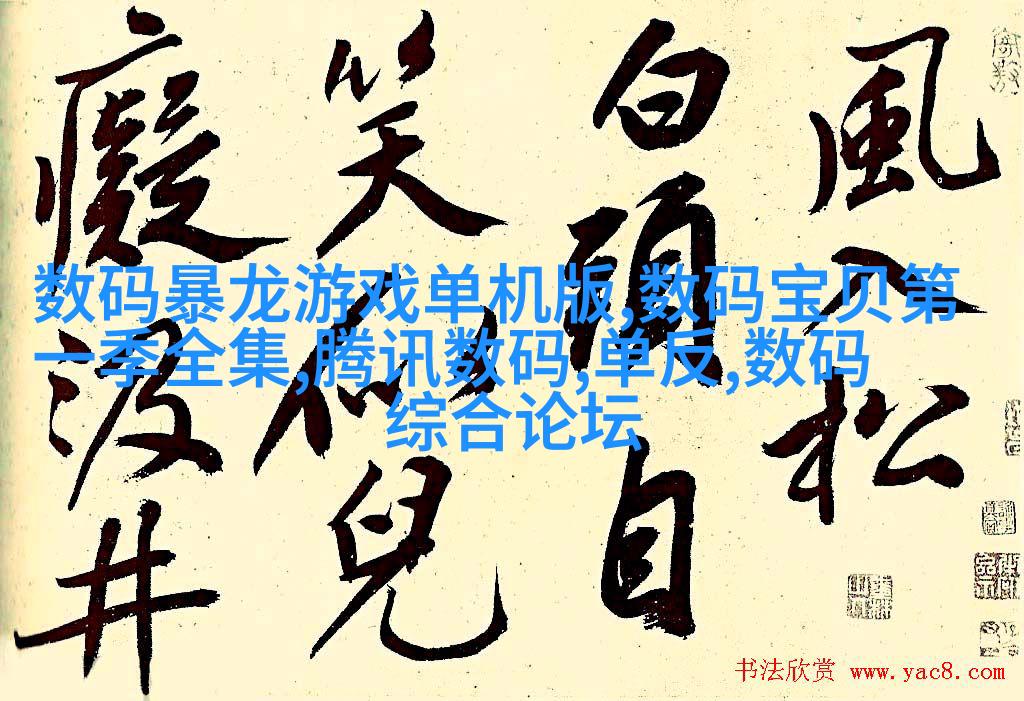 風入松
白頭自
笑似兒
癡汲井
数码暴龙游戏单机版,数码宝贝第
一季全集,腾讯数码,单反,数码
综合论坛
书法欣赏 www.yac8.com